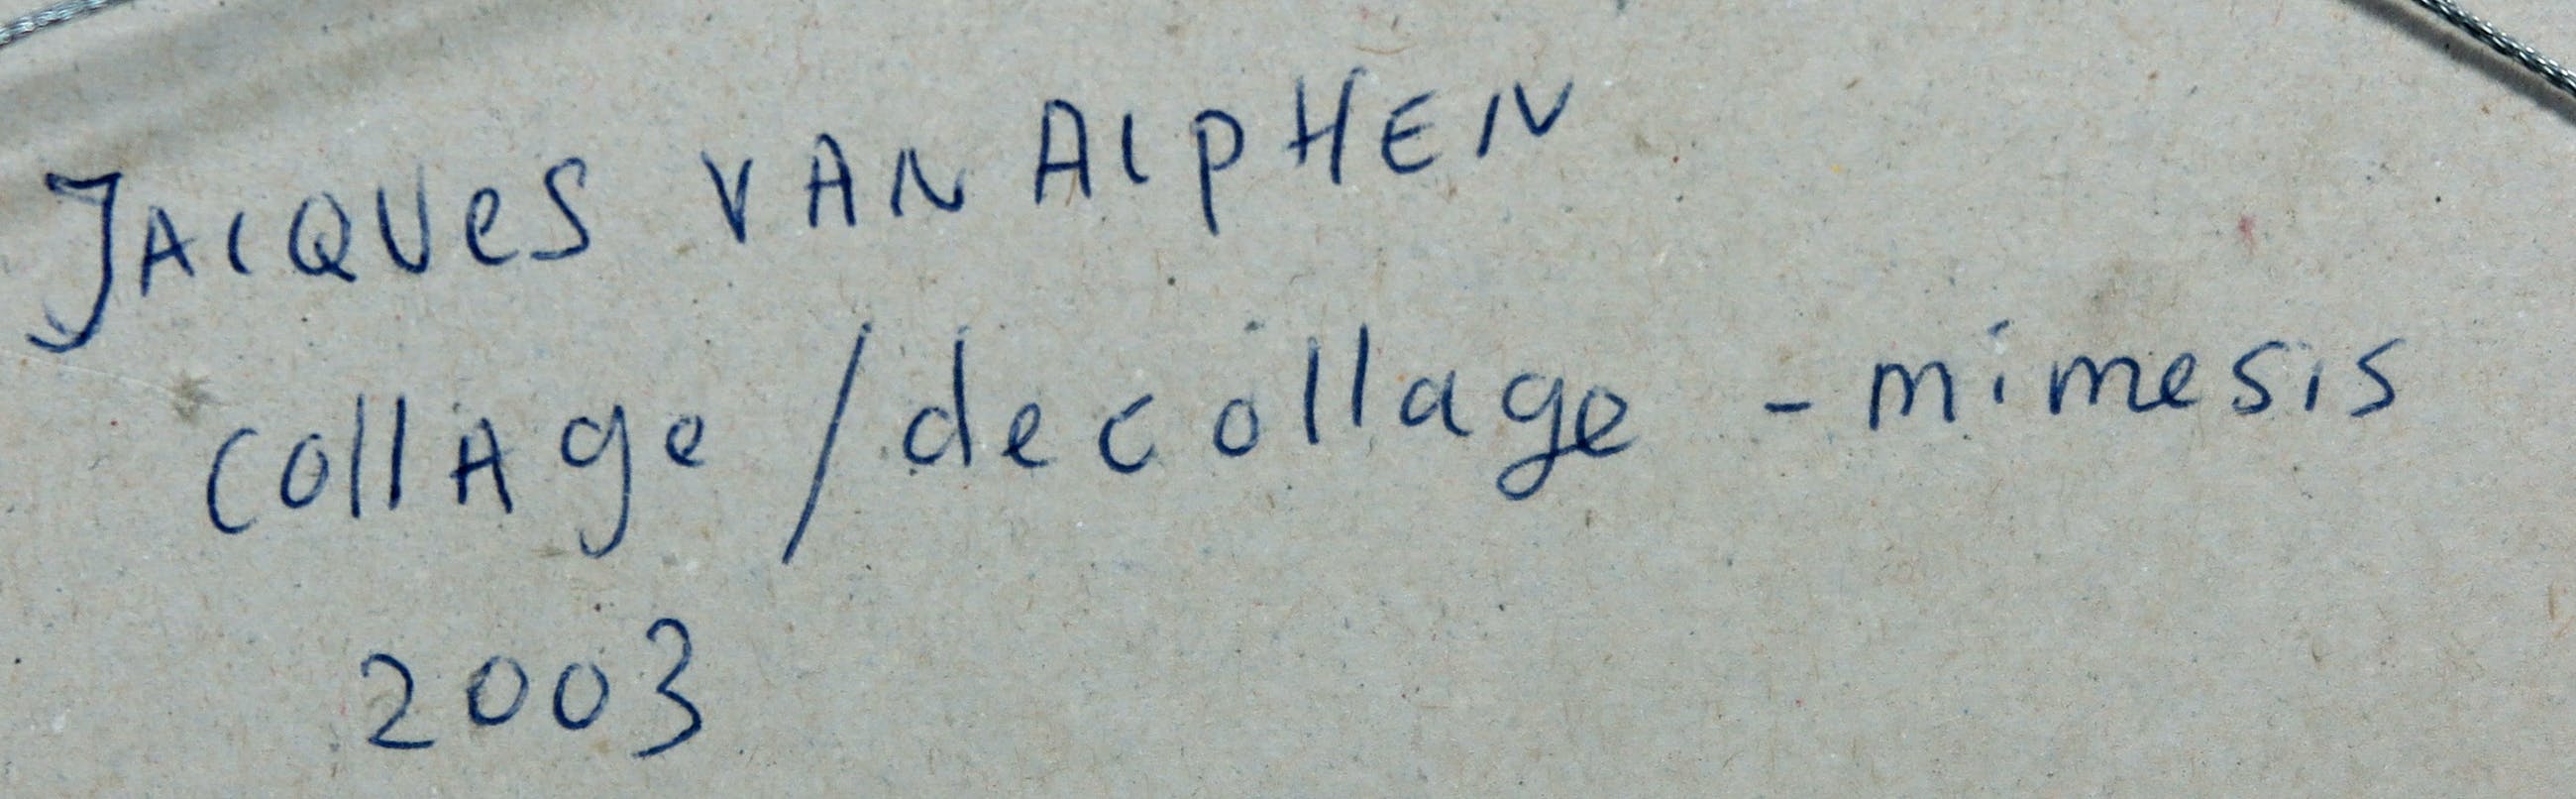 JACQUES VAN AlPHEN
collAge / decollage - mimesis
2003